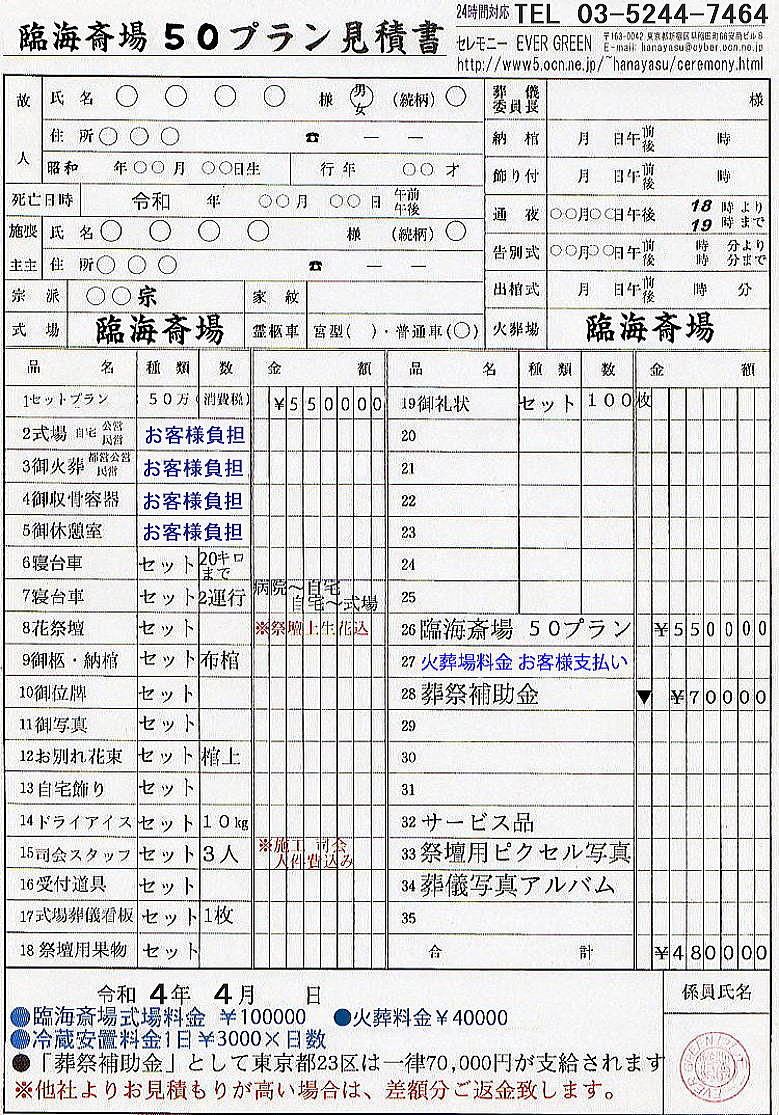 臨海斎場 50プラン見積書
24時間対応 TEL 03-5244-7464
セレモニー EVER GREEN
〒163-0042 東京都新宿区早稲田町66安商ビル8
E-mail: hanayasu@cyber.ocn.ne.jp
http://www5.ocn.ne.jp/~hanayasu/ceremony.html
故人 氏名 ○ ○ ○ ○ 様 男 女 (続柄) ○
住所 ○ ○ ○ ☎ — —
昭和 年 ○○ 月 ○○日生 行年 ○○ 才
死亡日時 令和 年 ○○ 月 ○○ 日 午前 午後
施主 喪主 氏名 ○ ○ ○ ○ 様 (続柄) ○
住所 ○ ○ ○ ☎ — —
宗派 ○○宗 家紋
式場 臨海斎場 霊柩車 宮型( )・普通車(○)
葬儀委員長 様
納棺 月 日午前後 時
飾り付 月 日午前後 時
通夜 ○○月○○日午後 18時より 19時まで
告別式 ○○月○○日午前後 時 分より 時 分まで
出棺式 月 日午前後 時 分
火葬場 臨海斎場
品名 種類 数 金額
1セットプラン 50万 (消費税) ¥550000
2式場 自宅 公営 民営 お客様負担
3御火葬 都営公営 民営 お客様負担
4御収骨容器 お客様負担
5御休憩室 お客様負担
6寝台車 セット 20キロまで
7寝台車 セット 2運行 病院〜自宅 自宅〜式場
8花祭壇 セット ※祭壇上生花込
9御柩・納棺 セット 布棺
10御位牌 セット
11御写真 セット
12お別れ花束 セット 棺上
13自宅飾り セット
14ドライアイス セット 10kg
15司会スタッフ セット 3人 ※施工 司会 人件費込み
16受付道具 セット
17式場葬儀看板 セット 1枚
18祭壇用果物 セット
品名 種類 数 金額
19御礼状 セット 100枚
20
21
22
23
24
25
26 臨海斎場 50プラン ¥550000
27 火葬場料金 お客様支払い
28 葬祭補助金 ▼ ¥70000
29
30
31
32 サービス品
33 祭壇用ピクセル写真
34 葬儀写真アルバム
35
合計 ¥480000
令和 4年 4月 日
係員氏名
●臨海斎場式場料金 ¥100000 ●火葬料金¥40000
●冷蔵安置料金1日¥3000×日数
●「葬祭補助金」として東京都23区は一律70,000円が支給されます
※他社よりお見積もりが高い場合は、差額分ご返金致します。